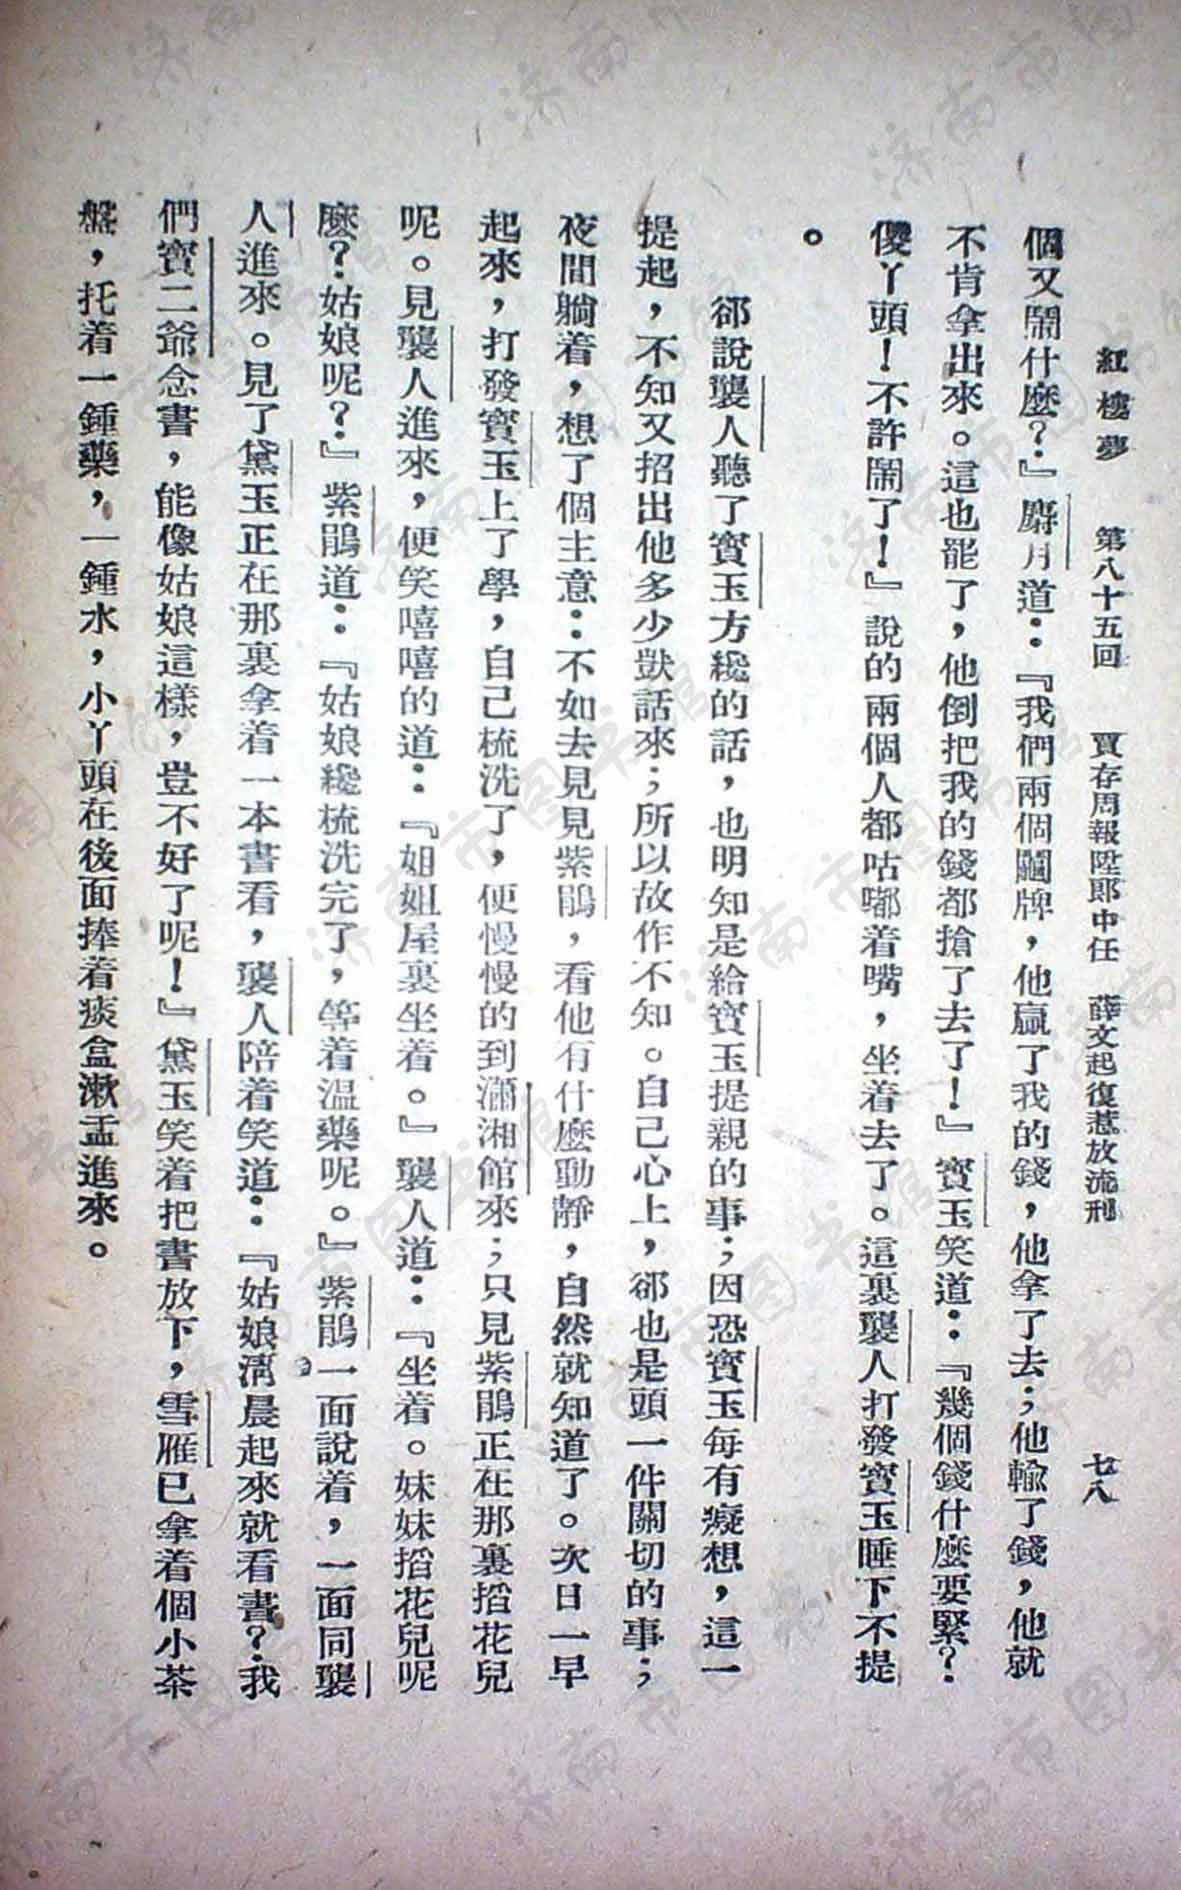 紅樓夢　第八十五回　賈存周報陞郎中任　薛文起復惹放流刑　七八
個又鬧什麼？』麝月道：『我們兩個鬭牌，他贏了我的錢，他拿了去；他輸了錢，他就
不肯拿出來。這也罷了，他倒把我的錢都搶了去了！』寶玉笑道：『幾個錢什麼要緊？
傻丫頭！不許鬧了！』說的兩個人都咕嘟着嘴，坐着去了。這裏襲人打發寶玉睡下不提
。
郤說襲人聽了寶玉方纔的話，也明知是給寶玉提親的事；因恐寶玉每有癡想，這一
提起，不知又招出他多少獃話來；所以故作不知。自己心上，郤也是頭一件關切的事；
夜間躺着，想了個主意：不如去見見紫鵑，看他有什麼動靜，自然就知道了。次日一早
起來，打發寶玉上了學，自己梳洗了，便慢慢的到瀟湘館來；只見紫鵑正在那裏搯花兒
呢。見襲人進來，便笑嘻嘻的道：『姐姐屋裏坐着。』襲人道：『坐着。妹妹搯花兒呢
麼？姑娘呢？』紫鵑道：『姑娘纔梳洗完了，等着溫藥呢。』紫鵑一面說着，一面同襲
人進來。見了黛玉正在那裏拿着一本書看，襲人陪着笑道：『姑娘淸晨起來就看書？我
們寶二爺念書，能像姑娘這樣，豈不好了呢！』黛玉笑着把書放下，雪雁已拿着個小茶
盤，托着一鍾藥，一鍾水，小丫頭在後面捧着痰盒漱盂進來。
濟南市图书馆